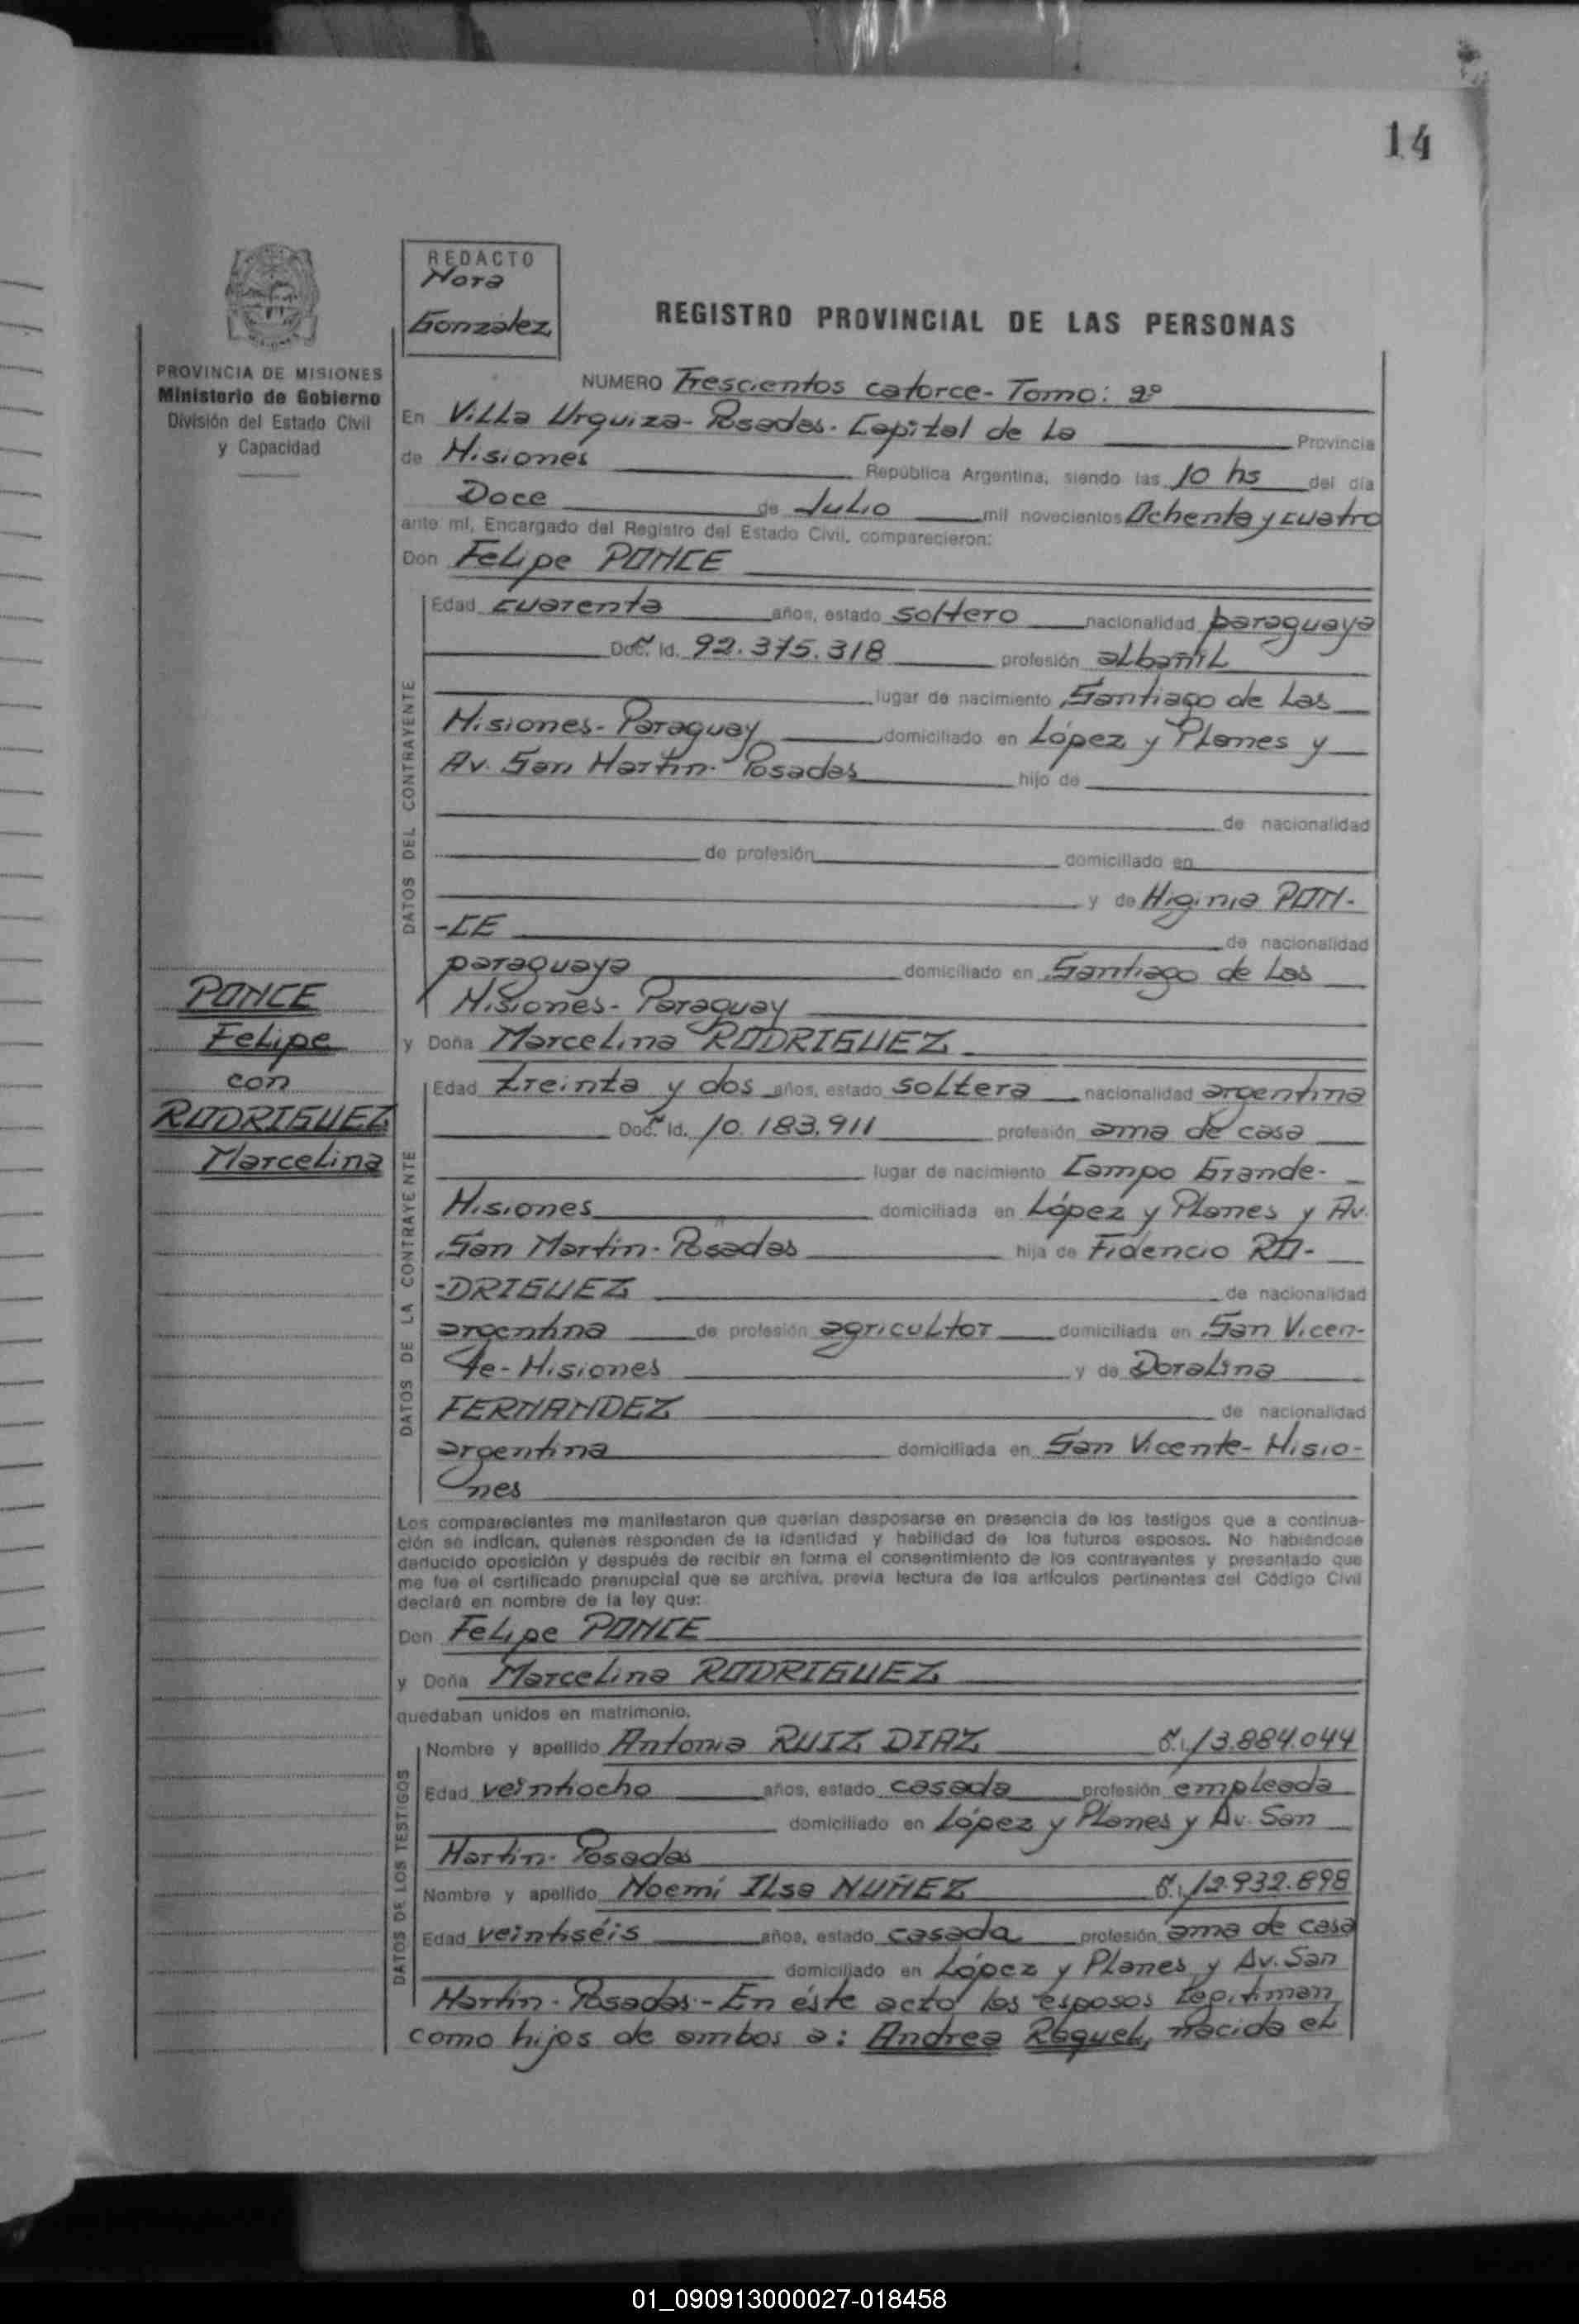 14
REDACTO
Nora
Gonzalez
REGISTRO PROVINCIAL DE LAS PERSONAS
PROVINCIA DE MISIONES
Ministerio de Gobierno
División del Estado Civil
y Capacidad
NUMERO Trescientos catorce- Tomo: 2º
En Villa Urquiza- Posadas- Capital de La Provincia
de Misiones República Argentina, siendo las 10 hs del día
Doce de Julio mil novecientos Ochenta y cuatro
ante mí, Encargado del Registro del Estado Civil, comparecieron:
Don Felipe PONCE
DATOS DEL CONTRAYENTE
Edad cuarenta años, estado soltero nacionalidad paraguaya
Doc. Id. 92.375.318 profesión albañil
lugar de nacimiento Santiago de Las
Misiones- Paraguay domiciliado en López y Planes y
Av. San Martín- Posadas hijo de
de nacionalidad
de profesión domiciliado en
y de Higinia PON-
-CE de nacionalidad
paraguaya domiciliado en Santiago de Las
Misiones- Paraguay
PONCE
Felipe
con
RODRIGUEZ
Marcelina
y Doña Marcelina RODRIGUEZ
DATOS DE LA CONTRAYENTE
Edad treinta y dos años, estado soltera nacionalidad argentina
Doc. Id. 10.183.911 profesión ama de casa
lugar de nacimiento Campo Grande-
Misiones domiciliada en López y Planes y Av.
San Martín- Posadas hija de Fidencio RO-
-DRIGUEZ de nacionalidad
argentina de profesión agricultor domiciliada en San Vicen-
te- Misiones y de Doralina
FERNANDEZ de nacionalidad
argentina domiciliada en San Vicente- Misio-
nes
Los comparecientes me manifestaron que querían desposarse en presencia de los testigos que a continua-
ción se indican, quienes responden de la identidad y habilidad de los futuros esposos. No habiéndose
deducido oposición y después de recibir en forma el consentimiento de los contrayentes y presentado que
me fue el certificado prenupcial que se archiva, previa lectura de los artículos pertinentes del Código Civil
declaré en nombre de la ley que:
Don Felipe PONCE
y Doña Marcelina RODRIGUEZ
quedaban unidos en matrimonio.
DATOS DE LOS TESTIGOS
Nombre y apellido Antonia RUIZ DIAZ 13.884.044
Edad veintiocho años, estado casada profesión empleada
domiciliado en López y Planes y Av. San
Martín- Posadas
Nombre y apellido Noemí Ilsa NUÑEZ 12.932.898
Edad veintiséis años, estado casada profesión ama de casa
domiciliado en López y Planes y Av. San
Martín- Posadas- En éste acto los esposos legitiman
como hijos de ambos a: Andrea Raquel, nacida el
01_090913000027-018458